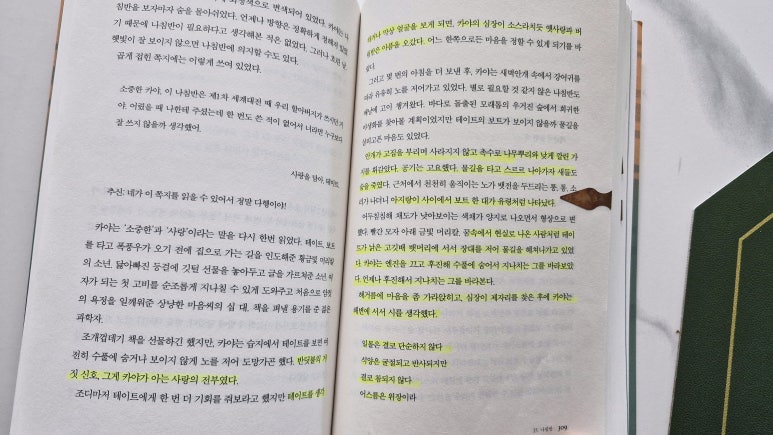 침반을 보자마자 숨을 몰아쉬었다. 언제나 방향은 정확하게 정해져 있었
기 때문에 나침반이 필요하다고 생각해본 적은 없었다. 그러나 흐린 날,
햇빛이 잘 보이지 않으면 나침반에 의지할 수도 있다.
곱게 접힌 쪽지에는 이렇게 쓰여 있었다.
소중한 카야, 이 나침반은 제1차 세계대전 때 우리 할아버지가 쓰시던 거
야. 어렸을 때 나한테 주셨는데 한 번도 쓴 적이 없어서 너라면 누구보다
잘 쓰지 않을까 생각했어.
사랑을 담아, 테이트
추신: 네가 이 쪽지를 읽을 수 있어서 정말 다행이야!
카야는 '소중한'과 '사랑'이라는 말을 다시 한번 읽었다. 테이트. 보트
를 타고 폭풍우가 오기 전에 집으로 가는 길을 인도해준 황금빛 머리칼
의 소년, 닳아빠진 등걸에 깃털 선물을 놓아두고 글을 가르쳐준 소년, 여
자가 되는 첫 고비를 순조롭게 지나칠 수 있게 도와주고 처음으로 암컷
의 욕정을 일깨워준 상냥한 마음씨의 십 대, 책을 펴낼 용기를 준 젊은
과학자.
조개껍데기 책을 선물하긴 했지만, 카야는 습지에서 테이트를 보면 여
전히 수풀에 숨거나 보이지 않게 노를 저어 도망가곤 했다. 반딧불의 거
짓 신호, 그게 카야가 아는 사랑의 전부였다.
조디마저 테이트에게 한 번 더 기회를 줘보라고 했지만 테이트를 생각
하거나 막상 얼굴을 보게 되면, 카야의 심장이 소스라치듯 옛사랑과 버
림받은 아픔을 오갔다. 어느 한쪽으로든 마음을 정할 수 있게 되기를 바
랐다.
그러고 몇 번의 아침을 더 보낸 후, 카야는 새벽안개 속에서 강어귀를
따라 유유히 노를 저어가고 있었다. 별로 필요할 것 같지 않은 나침반도
배낭에 고이 챙겨왔다. 바다로 돌출된 모래톱의 우거진 숲에서 희귀한
야생화를 찾아볼 계획이었지만 테이트의 보트가 보이지 않을까 물길을
살피고픈 마음도 있었다.
안개가 고집을 부리며 사라지지 않고 촉수로 나무뿌리와 낮게 깔린 가
지를 휘감았다. 공기는 고요했다. 물길을 타고 스르르 나아가자 새들도
숨을 죽였다. 근처에서 천천히 움직이는 노가 뱃전을 두드리는 통, 통, 소
리가 나더니 아지랑이 사이에서 보트 한 대가 유령처럼 나타났다.
어두침침해 채도가 낮아보이는 색채가 양지로 나오면서 형상으로 변
했다. 빨간 모자 아래 금빛 머리칼. 꿈속에서 현실로 나온 사람처럼 테이
트가 낡은 고깃배 뱃머리에 서서 장대를 저어 물길을 헤쳐나가고 있었
다. 카야는 엔진을 끄고 후진해 수풀에 숨어서 지나치는 그를 바라보았
다. 언제나 후진해서 지나치는 그를 바라본다.
해거름에 마음을 좀 가라앉히고, 심장이 제자리를 찾은 후에 카야는
해변에 서서 시를 생각했다.
일몰은 결코 단순하지 않다
석양은 굴절되고 반사되지만
결코 참되지 않다
어스름은 위장이라
309